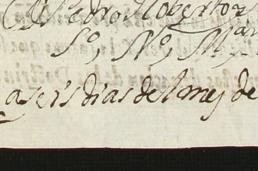 Pedro Roberto
So, No, Mar
a seis dias del mes de